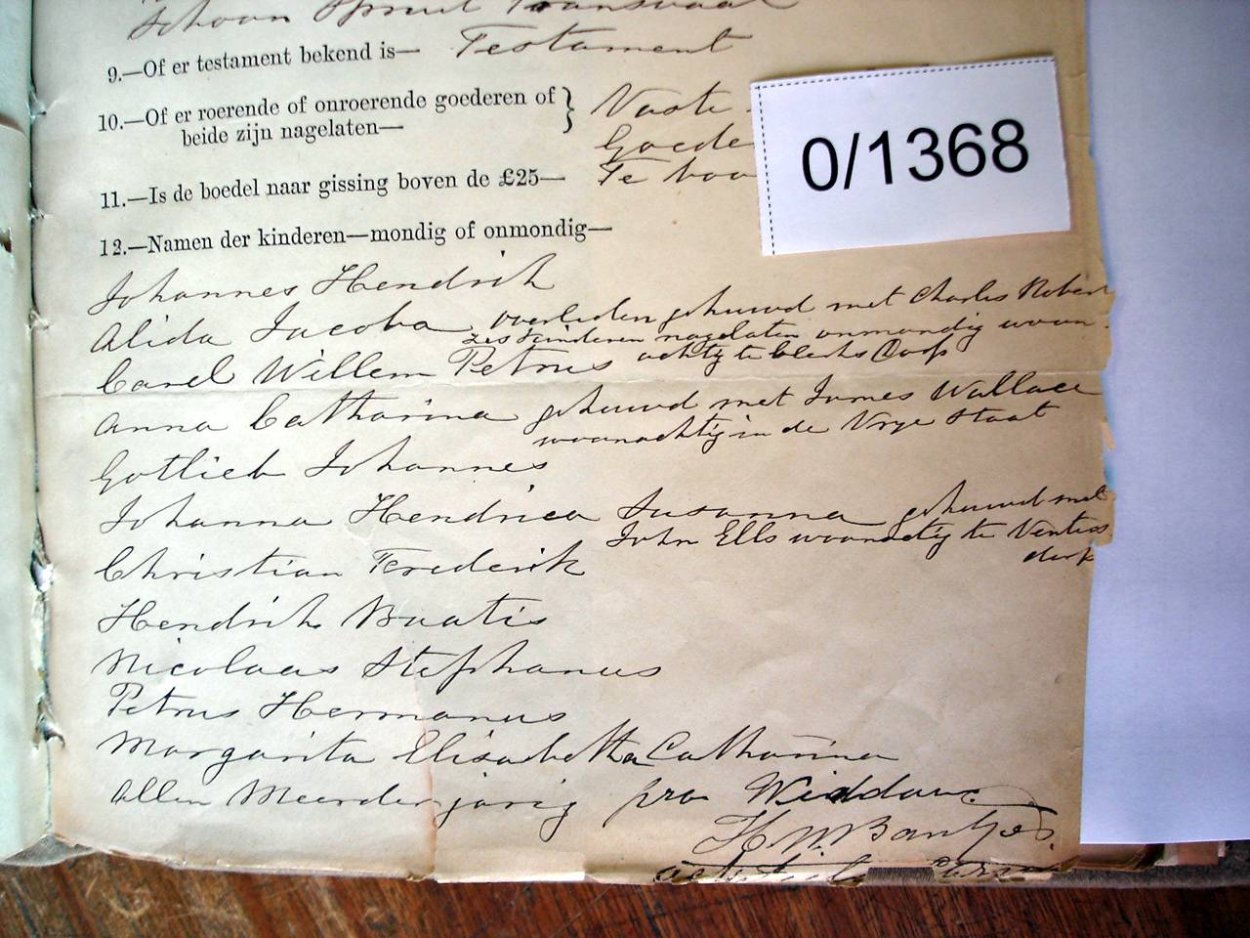 Schoon Spruit Transvaal
9.—Of er testament bekend is— Testament
10.—Of er roerende of onroerende goederen of } Vaste
beide zijn nagelaten— Goede
11.—Is de boedel naar gissing boven de £25— Te
0/1368
12.—Namen der kinderen—mondig of onmondig—
Johannes Hendrik
Alida Jacoba overleden gehuwd met Charles Robert
zes kinderen nagelaten onmondig woon
Carel Willem Petrus achtig te Clerks Dorp
Anna Catharina gehuwd met James Wallace
woonachtig in de Vrye Staat
Gotlieb Johannes
Johanna Hendrica Susanna gehuwd met
John Ells woonactig te Venters
dorp
Christian Frederik
Hendrik
Nicolaas Stephanus
Petrus Hermanus
Margarita Elisabetha Catharina
Allen Meerder jarig pro
H.W. Bantjes